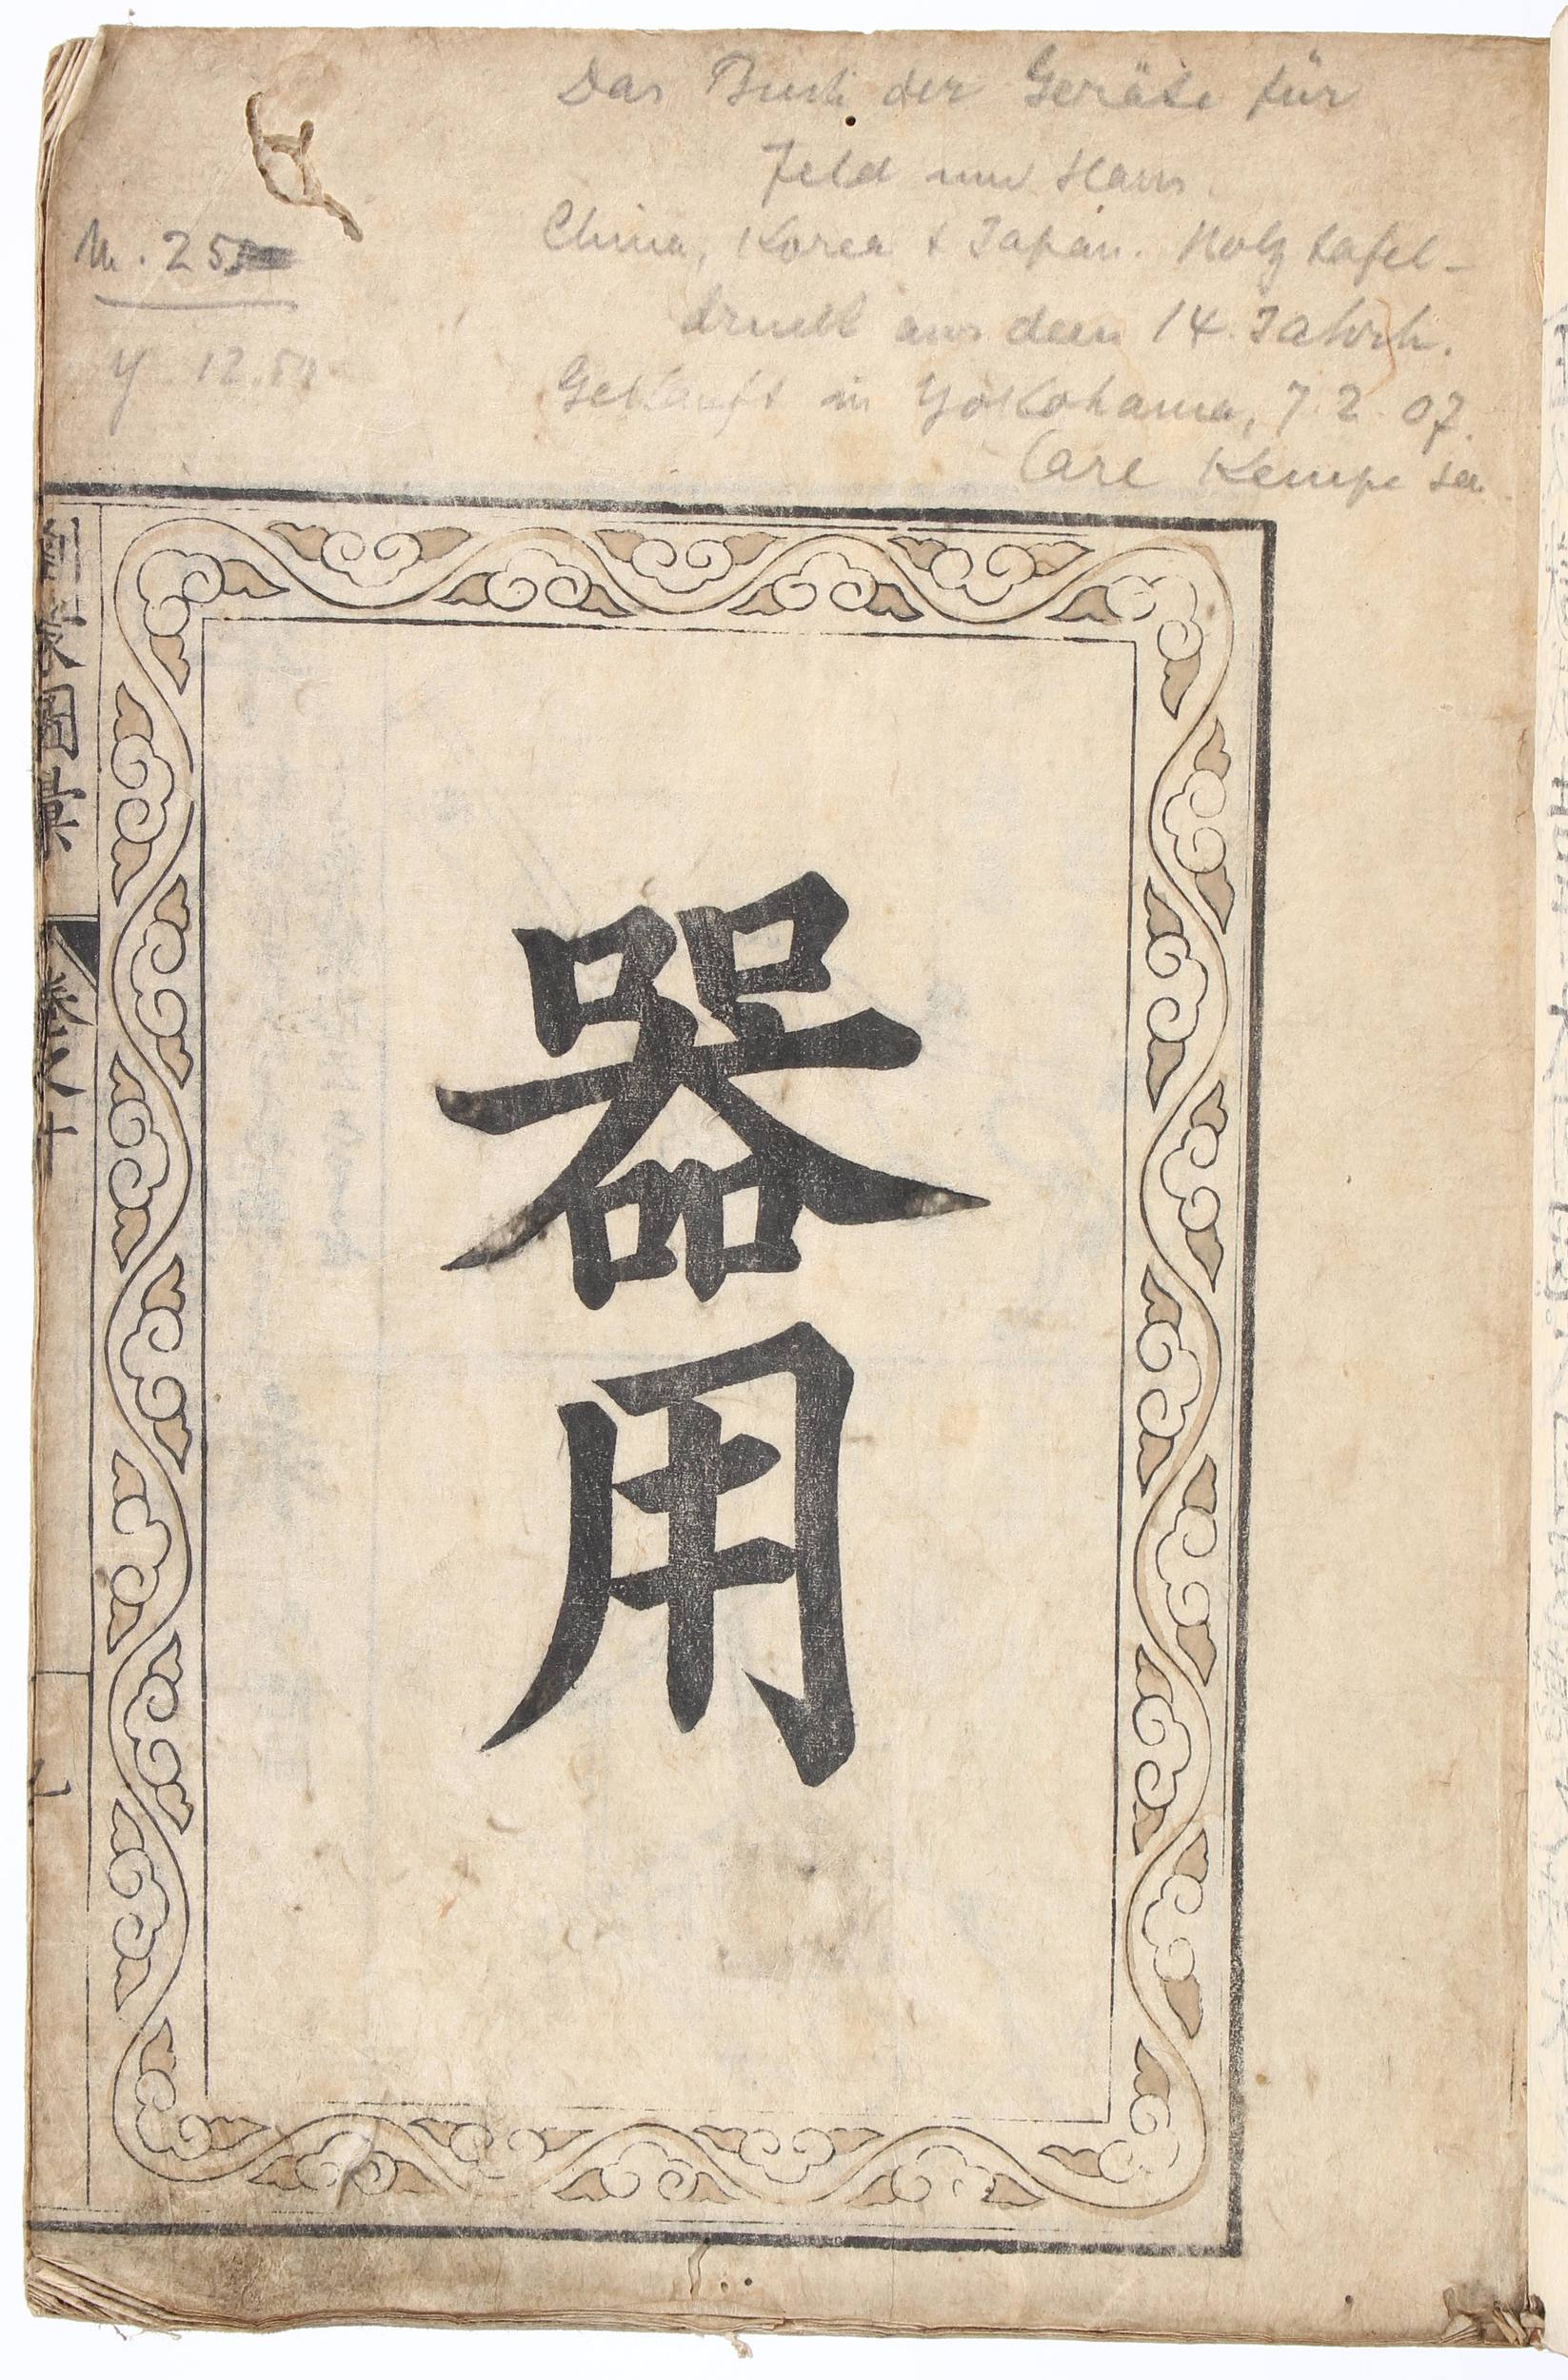 Das Buch der Geräte für
Feld und Haus.
China, Korea & Japan. Holztafel-
druck aus dem 14. Jahrh.
Gekauft in Yokohama, 7.2.07.
Carl Kempe sen.
M. 25
Y 12.50
器用